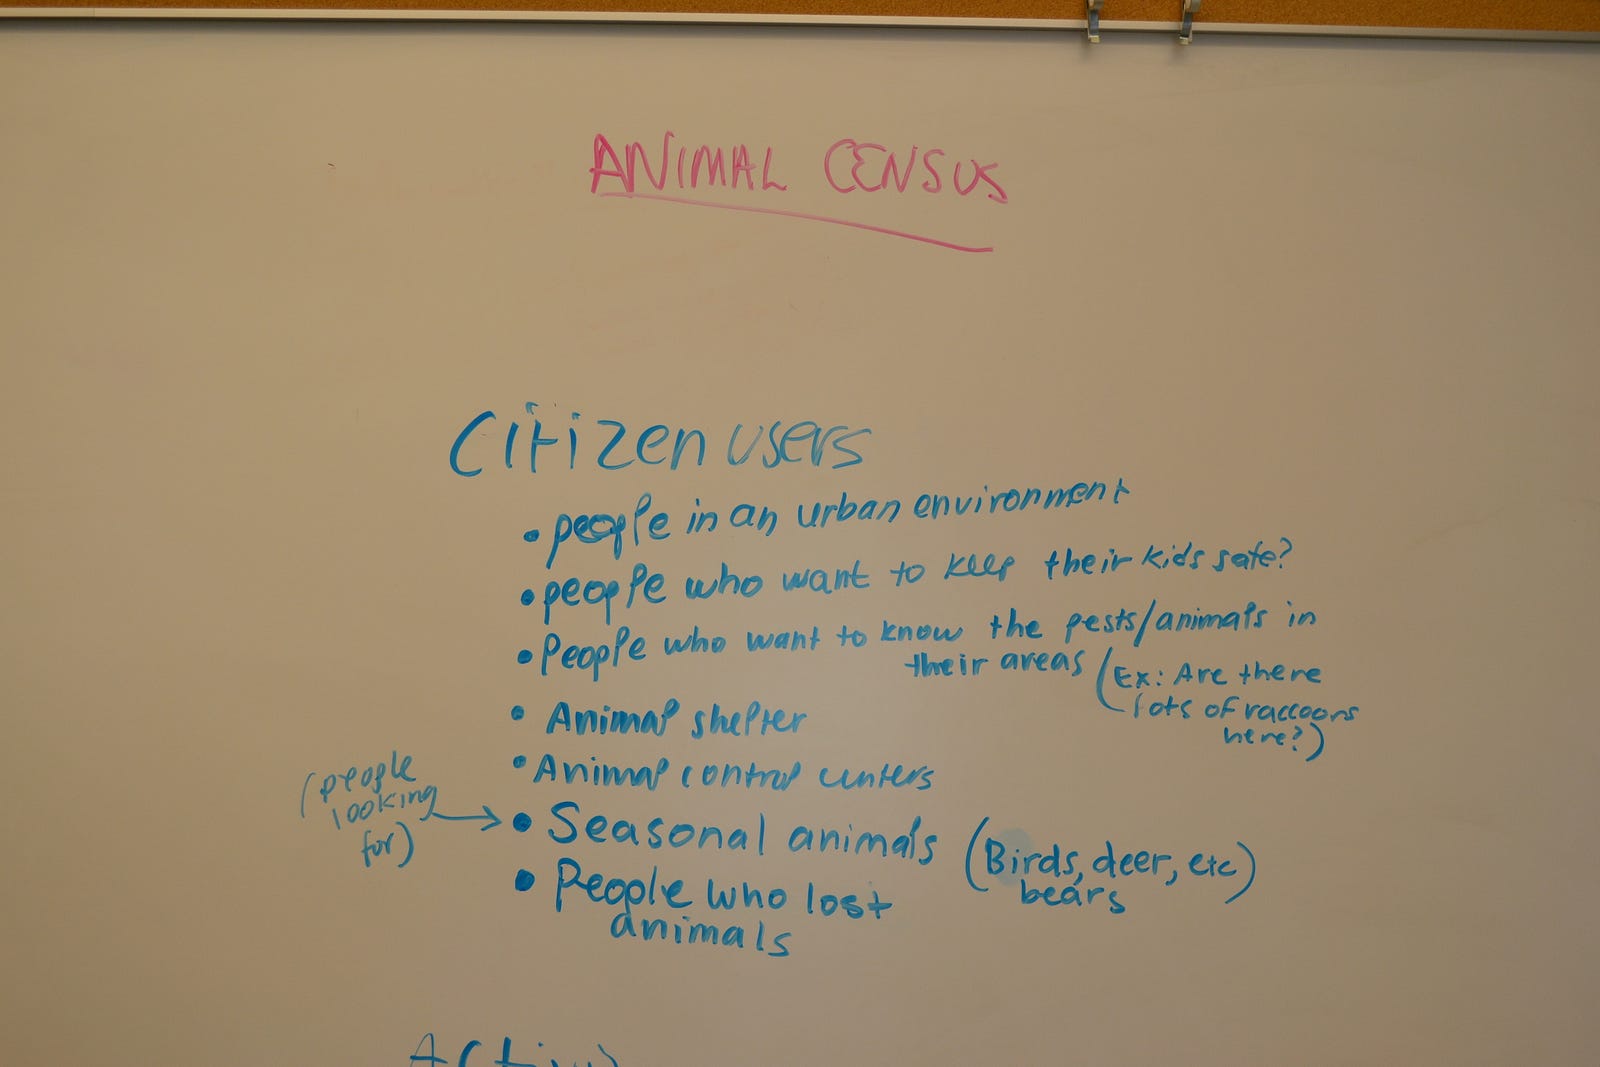 ANIMAL CENSUS
Citizen users
• people in an urban environment
• people who want to keep their kids safe?
• People who want to know the pests/animals in
their areas (Ex: Are there
lots of raccoons
here?)
• Animal shelter
• Animal control centers
(people
looking
for) →
• Seasonal animals (Birds, deer, etc)
bears
• People who lost
animals